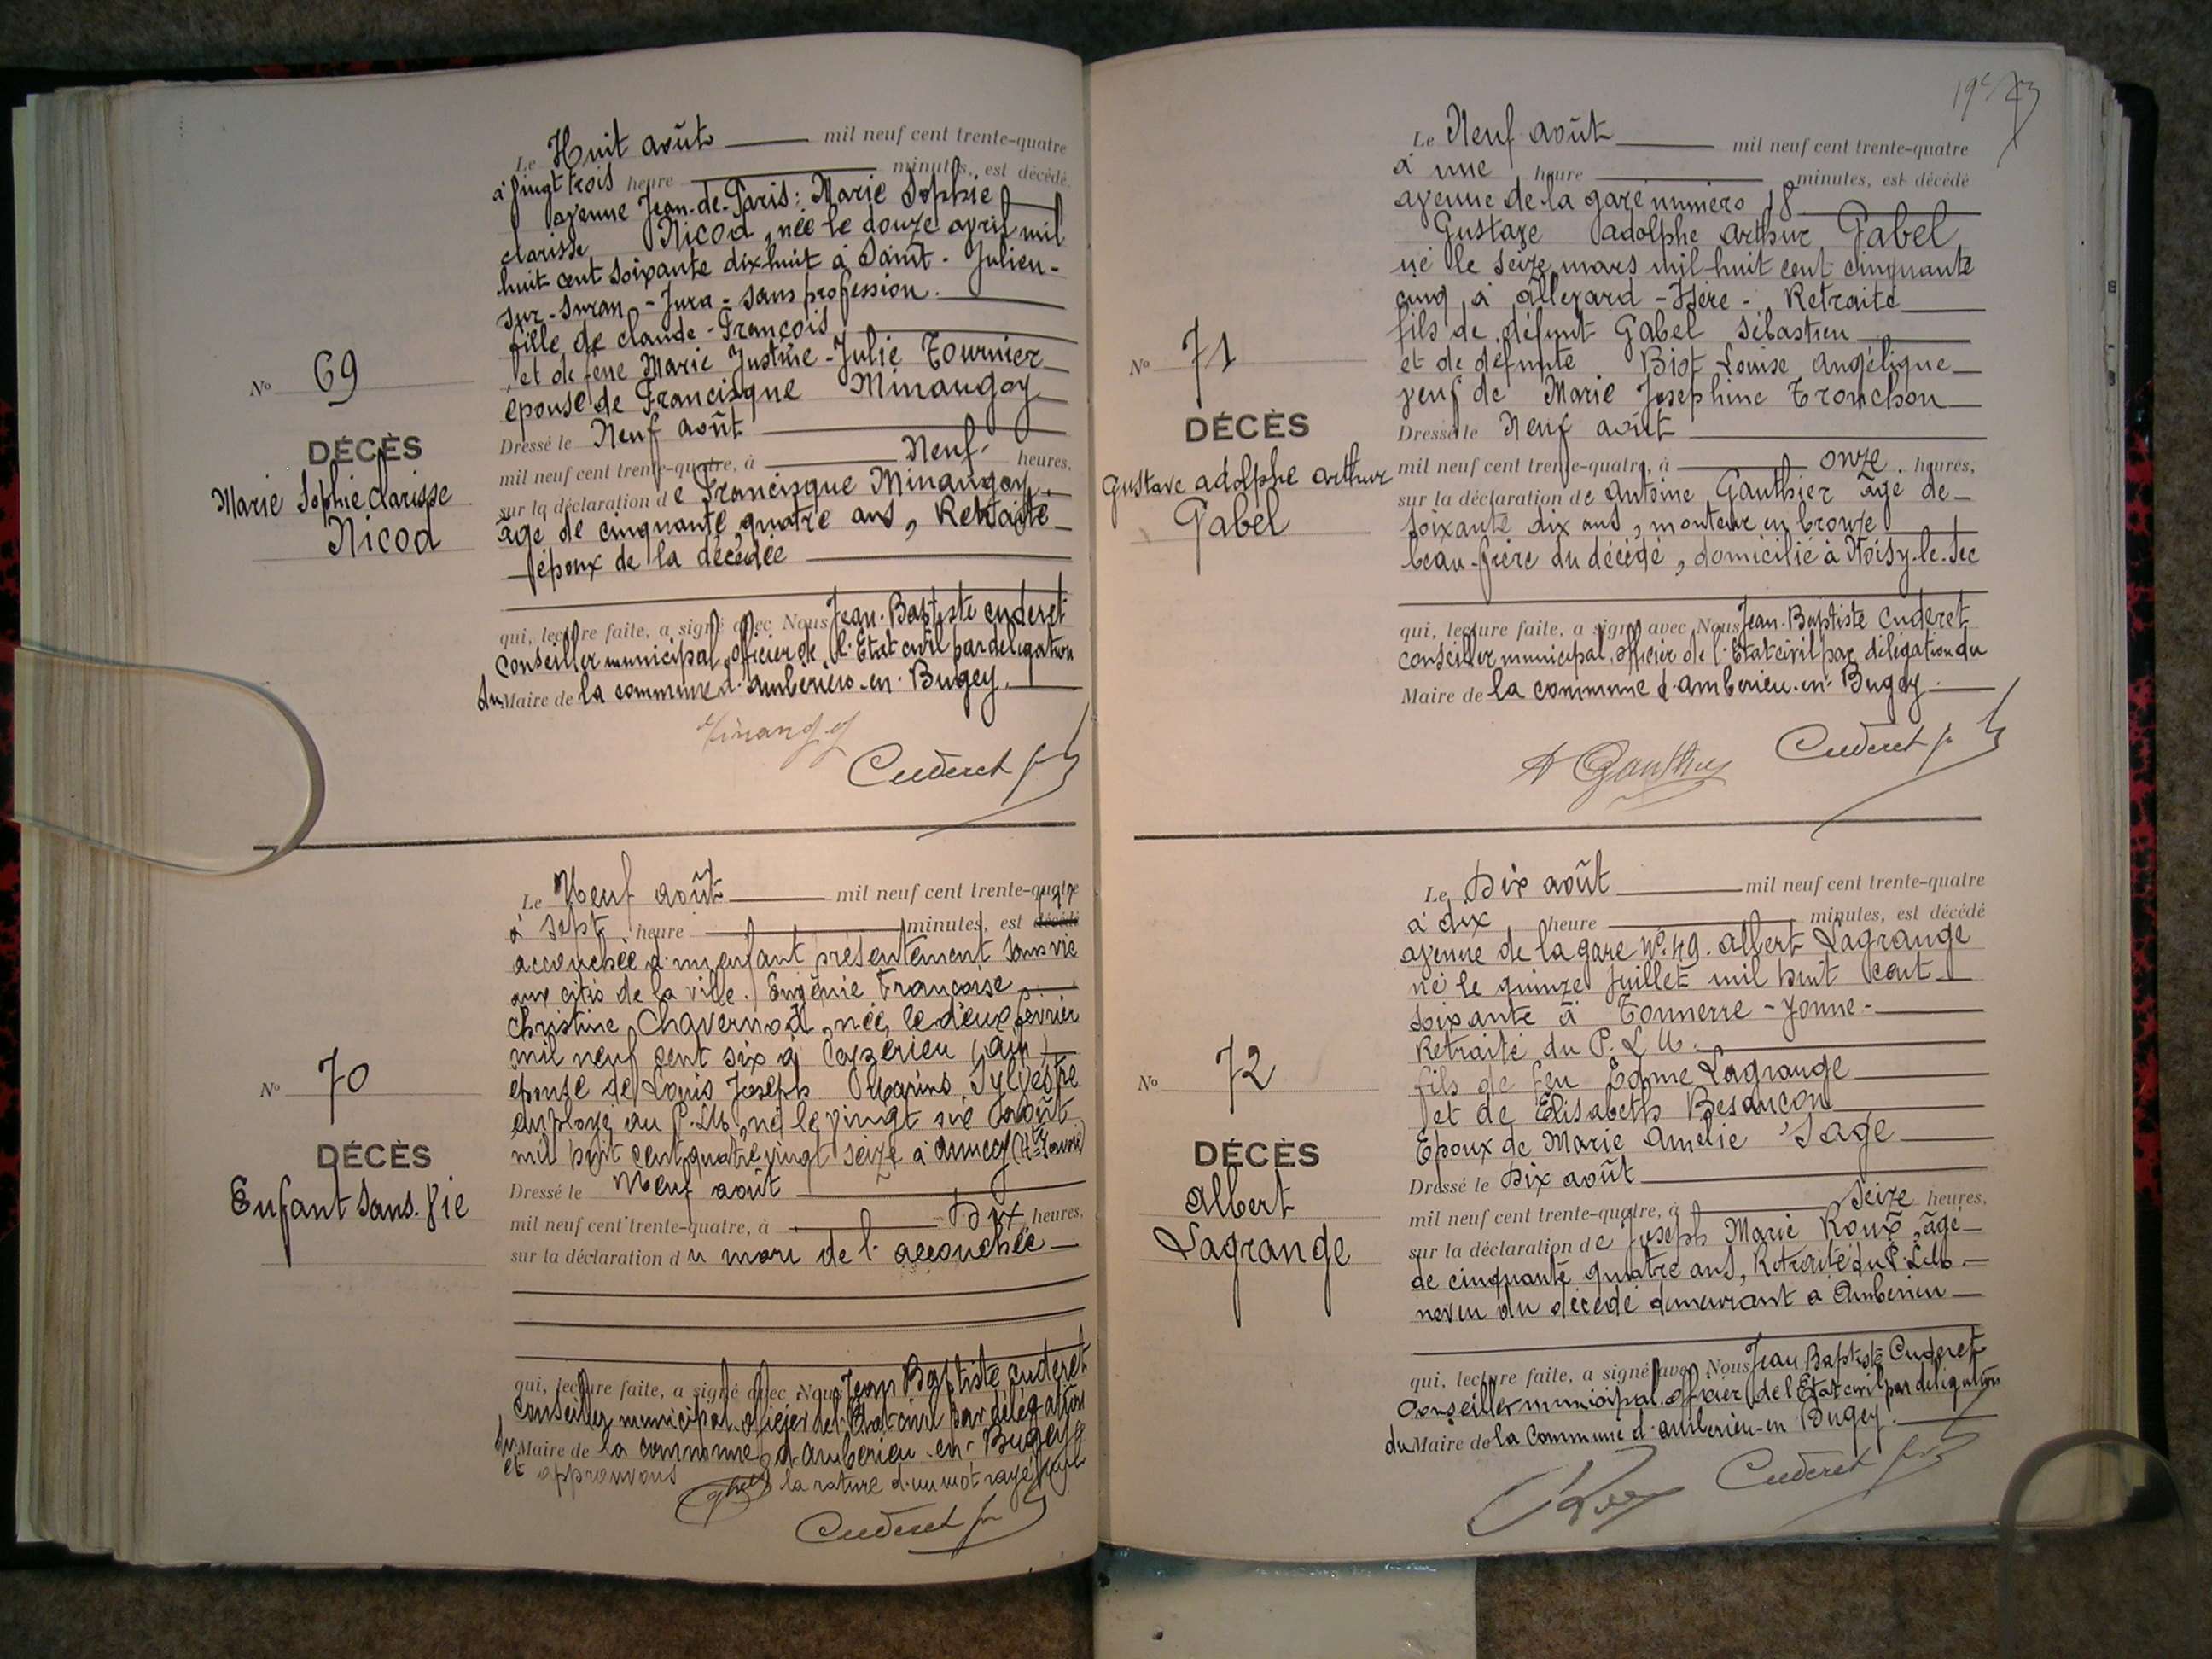 No 69
DÉCÈS
Marie Sophie Clarisse
Nicod
Le Huit août mil neuf cent trente-quatre
à vingt trois heure minutes, est décédé
avenue Jean-de-Paris: Marie Sophie
clarisse Nicod, née le douze avril mil
huit cent soixante dix huit à Saint-Julien-
sur-Suran-Jura-sans profession.
fille de claude-François
et de feue Marie Justine-Julie Tournier
épouse de Francisque Minaugoy
Dressé le Neuf août
mil neuf cent trente-quatre, à Neuf heures,
sur la déclaration de Francisque Minaugoy,
âgé de cinquante quatre ans, Retraité
époux de la décédée
qui, lecture faite, a signé avec Nous Jean-Baptiste Cuderet
Conseiller municipal officier de l'Etat civil par délégation
du Maire de la commune d'ambérieu-en-Bugey.
Cuderet
No 70
DÉCÈS
Enfant sans vie
Le Neuf août mil neuf cent trente-quatre
à sept heure minutes, est décédé
accouchée d'un enfant présentement sans vie
aux cités de la ville. Eugénie Françoise
Christine Chavernod, née le deux février
mil neuf cent six à Cuzieu (ain)
épouse de Louis Joseph Marius Sylvestre
employé au P.L.M, né le vingt six août
mil huit cent quatre vingt seize à annecy (Hte Savoie)
Dressé le Neuf août
mil neuf cent trente-quatre, à Dix heures,
sur la déclaration du mari de l'accouchée
qui, lecture faite, a signé avec Nous Jean Baptiste Cuderet
Conseiller municipal officier de l'Etat-civil par délégation
du Maire de la commune d'ambérieu-en-Bugey
et approuvons la rature d'un mot rayé nul
Cuderet
No 71
DÉCÈS
Gustave adolphe arthur
Gabel
Le Neuf août mil neuf cent trente-quatre
à une heure minutes, est décédé
avenue de la gare numéro 18
Gustave adolphe arthur Gabel
né le seize mars mil huit cent cinquante
cinq à allevard-Isère-Retraité
fils de défunt Gabel Sébastien
et de défunte Biot Louise Angélique
veuf de Marie Josephine Tronchon
Dressé le Neuf août
mil neuf cent trente-quatre, à onze heures,
sur la déclaration de Antoine Gauthier âgé de
soixante dix ans, monteur en bronze
beau-frère du décédé, domicilié à Noisy-le-Sec
qui, lecture faite, a signé avec Nous Jean-Baptiste Cuderet
conseiller municipal, officier de l'Etat civil par délégation du
Maire de la commune d'ambérieu-en-Bugey
A Gauthier Cuderet
No 72
DÉCÈS
Albert
Lagrange
Le Dix août mil neuf cent trente-quatre
à dix heure minutes, est décédé
avenue de la gare No 49. Albert Lagrange
né le quinze Juillet mil huit cent
soixante à Tonnerre-Yonne-
Retraité du P.L.M.
fils de feu Edme Lagrange
et de Elisabeth Besançon
Epoux de Marie Amélie Sage
Dressé le Dix août
mil neuf cent trente-quatre, à Seize heures,
sur la déclaration de Joseph Marie Roux, âgé
de cinquante quatre ans, Retraité du P.L.M.
neveu du décédé demeurant à Ambérieu
qui, lecture faite, a signé avec Nous Jean Baptiste Cuderet
Conseiller municipal officier de l'Etat civil par délégation
du Maire de la Commune d'ambérieu-en Bugey.
Cuderet